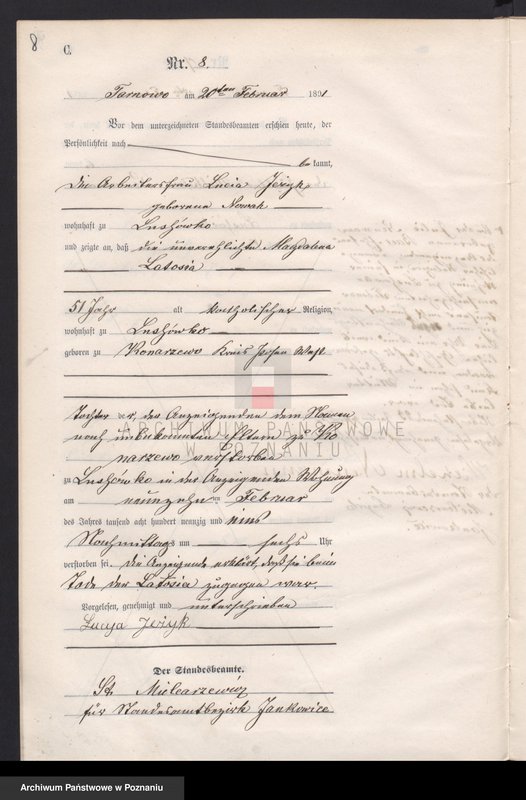 8
C.
Nr. 8.
Tarnowo am 20ten Februar 1891
Vor dem unterzeichneten Standesbeamten erschien heute, der
Persönlichkeit nach
bekannt,
die Arbeitersfrau Lucia Jezyk,
geborene Nowak
wohnhaft zu Lusówko
und zeigte an, daß die unverehlichte Magdalena
Latosia
51 Jahr alt katholischer Religion,
wohnhaft zu Lusówko
geboren zu Konarzewo Kreis Posen West
Tochter der, der Anzeigenden dem Namen
nach unbekannten Eltern zu Ko
narzewo verstorben
zu Lusówko in der Anzeigenden Wohnung
am neunzehn ten Februar
des Jahres tausend acht hundert neunzig und eins
Nachmittags um sechs Uhr
verstorben sei. Die Anzeigende erklärt, daß sie beim
Tode der Latosia zugegen war.
Vorgelesen, genehmigt und unterschrieben
Lucya Jezyk
Der Standesbeamte.
St. Mielcarzewicz
für Standesamtbezirk Jankowice
ARCHIWUM PAŃSTWOWE
W POZNANIU
Archiwum Państwowe w Poznaniu